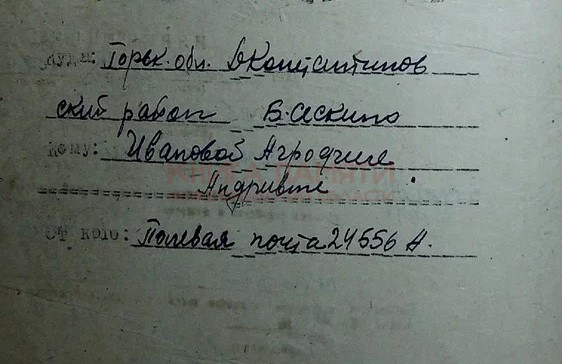 Куда: Горьк. обл. ДКонстантинов
ский район В. Аскино
Кому: Ивановой Агродчене
Андривне
КНИГА ПАМЯТИ
От кого: Полевая почта 24556 А.